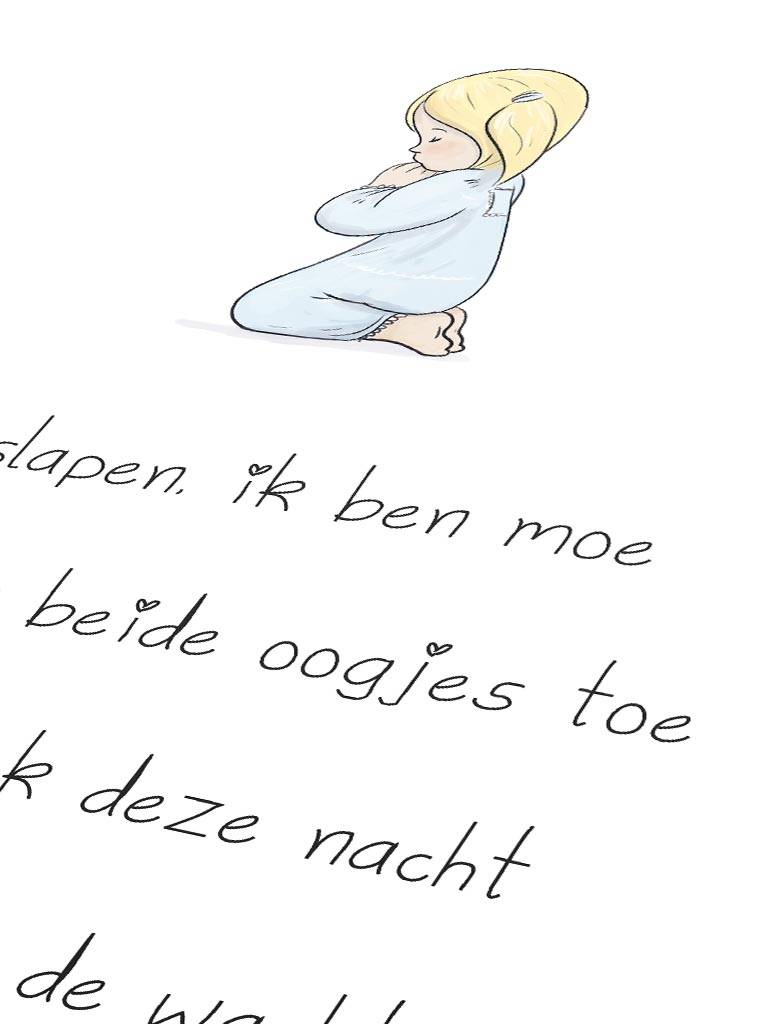 slapen. ik ben moe
beide oogjes toe
k deze nacht
de